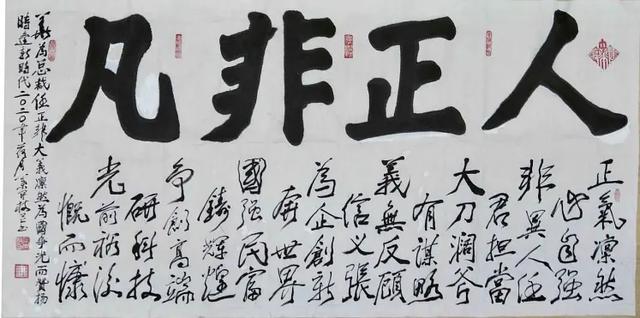 人正非凡
正氣凜然
自强
非異人任
君担當
大刀濶斧
有謀略
義無反顧
信义張
為企創新
奔世界
國强民富
鑄輝煌
争創高端
研科技
光前裕後
慨而慷
華為总裁任正非大義凜然為國争光而赞揚
時逢新時代二〇二〇年